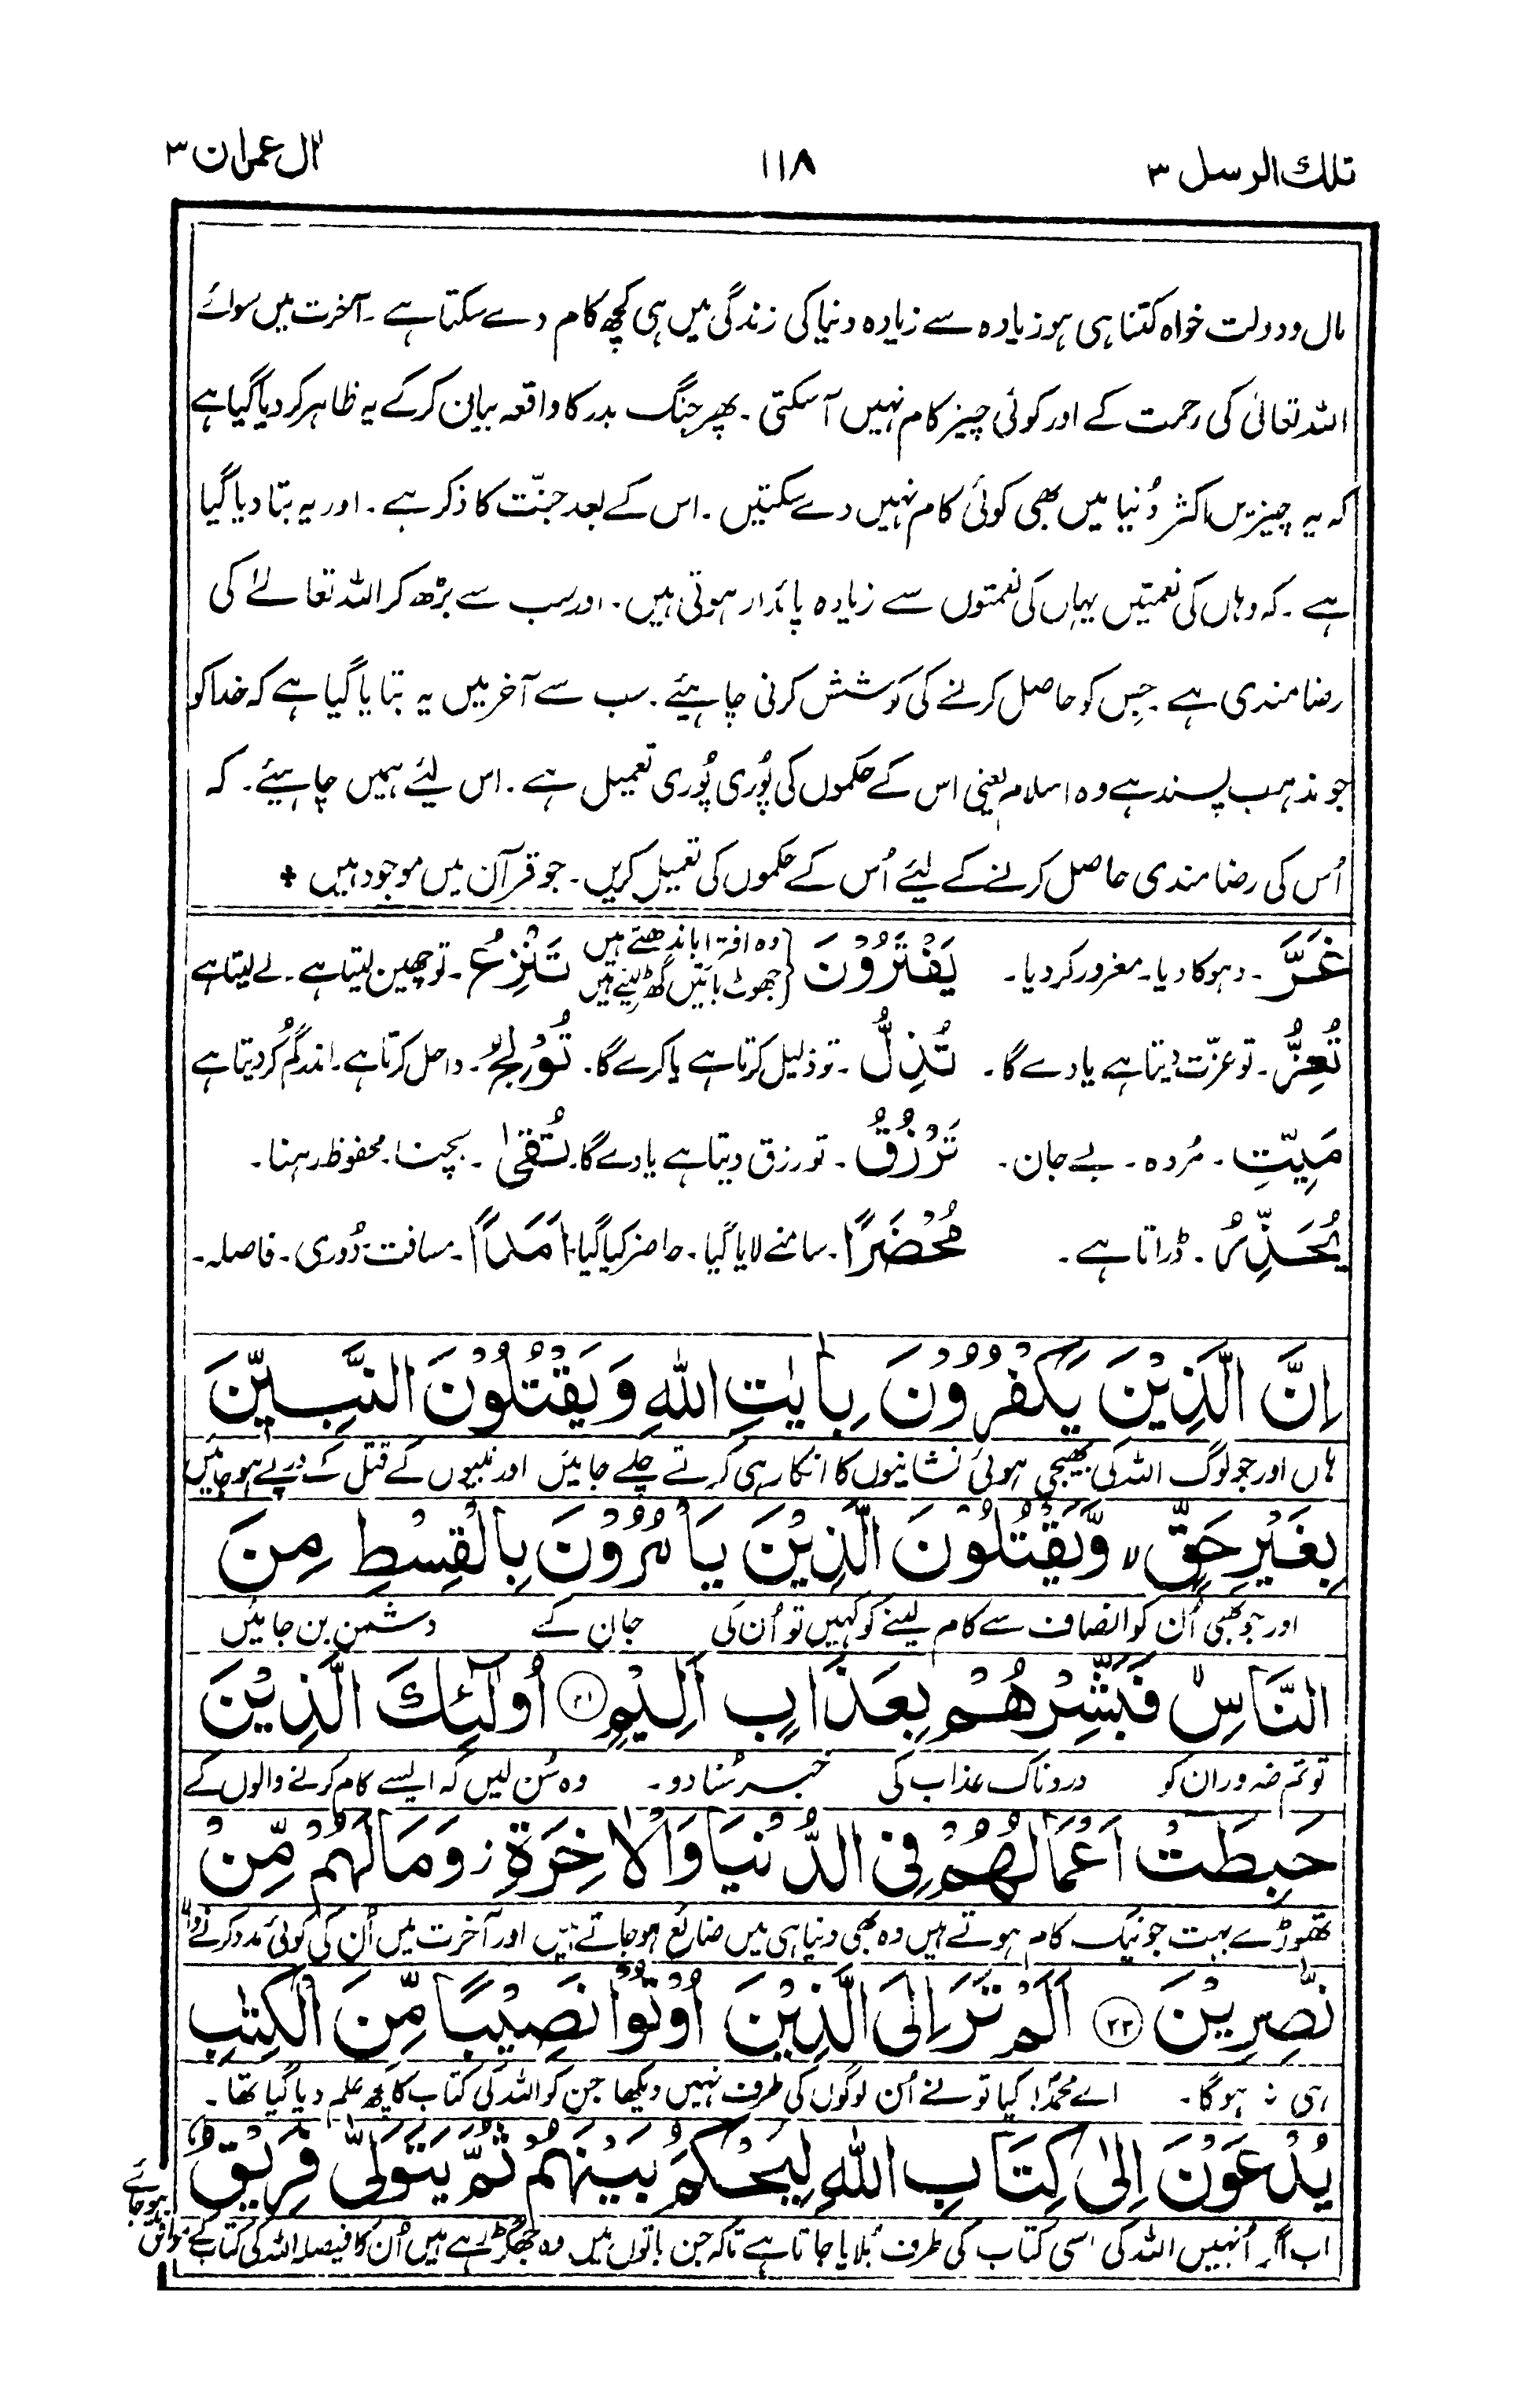 تلك الرسل ٣
١١٨
اٰل عمران ٣
مال و دولت خواہ کتنا ہی ہو زیادہ سے زیادہ دنیا کی زندگی میں ہی کچھ کام دے سکتا ہے ۔ آخرت میں سوائے
اللہ تعالیٰ کی رحمت کے اور کوئی چیز کام نہیں آ سکتی ۔ پھر جنگ بدر کا واقعہ بیان کر کے یہ ظاہر کر دیا گیا ہے
کہ یہ چیزیں اکثر دُنیا میں بھی کوئی کام نہیں دے سکتیں ۔ اس کے بعد جنّت کا ذکر ہے ۔ اور یہ بتا دیا گیا
ہے ۔ کہ وہاں کی نعمتیں یہاں کی نعمتوں سے زیادہ پائدار ہوتی ہیں ۔ اور سب سے بڑھ کر اللہ تعالےٰ کی
رضا مندی ہے ۔ جس کو حاصل کرنے کی کوشش کرنی چاہیئے ۔ سب سے آخر میں یہ بتایا گیا ہے کہ خدا کو
جو مذہب پسند ہے وہ اسلام یعنی اس کے حکموں کی پُوری پُوری تعمیل ہے ۔ اس لیئے ہمیں چاہیئے ۔ کہ
اُس کی رضا مندی حاصل کرنے کے لیئے اُس کے حکموں کی تعمیل کریں ۔ جو قرآن میں موجود ہیں ٭
غَرَّ ۔ دہوکا دیا ۔ مغرور کر دیا ۔ يَفْتَرُوْنَ { وہ افترا باندھتے ہیں جھوٹ باتیں گھڑ لیتے ہیں تَنْزِعُ ۔ تو چھین لیتا ہے ۔ لے لیتا ہے
تُعِزُّ ۔ تو عزّت دیتا ہے یا دے گا ۔ تُذِلُّ ۔ تو ذلیل کرتا ہے یا کرے گا ۔ تُوْلِجُ ۔ داخل کرتا ہے ۔ اندر گُم کر دیتا ہے
مَيِّتِ ۔ مُردہ ۔ بے جان ۔ تَرْزُقُ ۔ تو رزق دیتا ہے یا دے گا ۔ تُقٰىةً ۔ بچنا ۔ محفوظ رہنا ۔
يُحَذِّرُ ۔ ڈراتا ہے ۔ مُحْضَرًا ۔ سامنے لایا گیا ۔ حاضر کیا گیا ۔ اَمَدًا ۔ مسافت ۔ دُوری ۔ فاصلہ ۔
اِنَّ الَّذِيْنَ يَكْفُرُوْنَ بِاٰيٰتِ اللّٰهِ وَيَقْتُلُوْنَ النَّبِيّٖنَ
ہاں اور جو لوگ اللہ کی بھیجی ہوئی نشانیوں کا انکار ہی کرتے چلے جائیں اور نبیوں کے قتل کے درپے ہو جائیں
بِغَيْرِ حَقٍّ ۙ وَّيَقْتُلُوْنَ الَّذِيْنَ يَاْمُرُوْنَ بِالْقِسْطِ مِنَ
اور جو بھی اُن کو انصاف سے کام لینے کو کہیں تو اُن کی جان کے دشمن بن جائیں
النَّاسِ ۙ فَبَشِّرْهُمْ بِعَذَابٍ اَلِيْمٍ ۲۱ اُولٰٓئِكَ الَّذِيْنَ
تو تم ضرور ان کو دردناک عذاب کی خبر سُنا دو ۔ وہ سُن لیں کہ ایسے کام کرنے والوں کے
حَبِطَتْ اَعْمَالُهُمْ فِى الدُّنْيَا وَالْاٰخِرَةِ ز وَمَا لَهُمْ مِّنْ
تھوڑے بہت جو نیک کام ہوتے ہیں وہ بھی دنیا ہی میں ضائع ہو جاتے ہیں اور آخرت میں اُن کی کوئی مدد کرنے والا
نّٰصِرِيْنَ ۲۲ اَلَمْ تَرَ اِلَى الَّذِيْنَ اُوْتُوْا نَصِيْبًا مِّنَ الْكِتٰبِ
ہی نہ ہوگا ۔ اے محمدؐ! کیا تو نے اُن لوگوں کی طرف نہیں دیکھا جن کو اللہ کی کتاب کا کچھ علم دیا گیا تھا ۔
يُدْعَوْنَ اِلٰى كِتَابِ اللّٰهِ لِيَحْكُمَ بَيْنَهُمْ ثُمَّ يَتَوَلّٰى فَرِيْقٌ
اب اگر اُنہیں اللہ کی اسی کتاب کی طرف بُلایا جاتا ہے تاکہ جن باتوں میں وہ جھگڑ رہے ہیں اُن کا فیصلہ اللہ کی کتاب کے موافق
ہو جائے